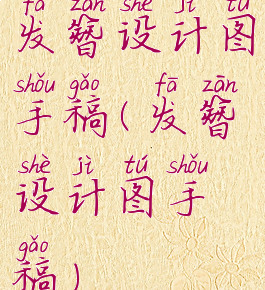 fà zān shè jì tú
发簪设计图
shǒu gǎo fā zān
手稿(发簪
shè jì tú shǒu
设计图手
gǎo
稿)